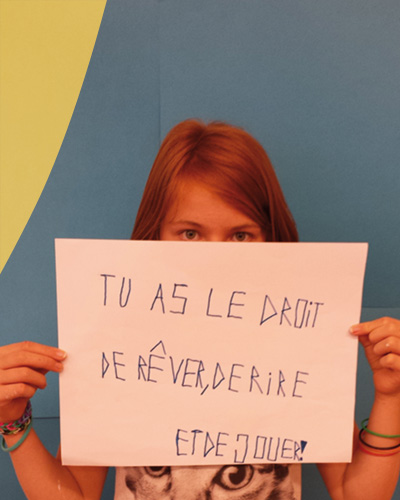 TU AS LE DROIT
DE RÊVER, DE RIRE
ET DE JOUER!